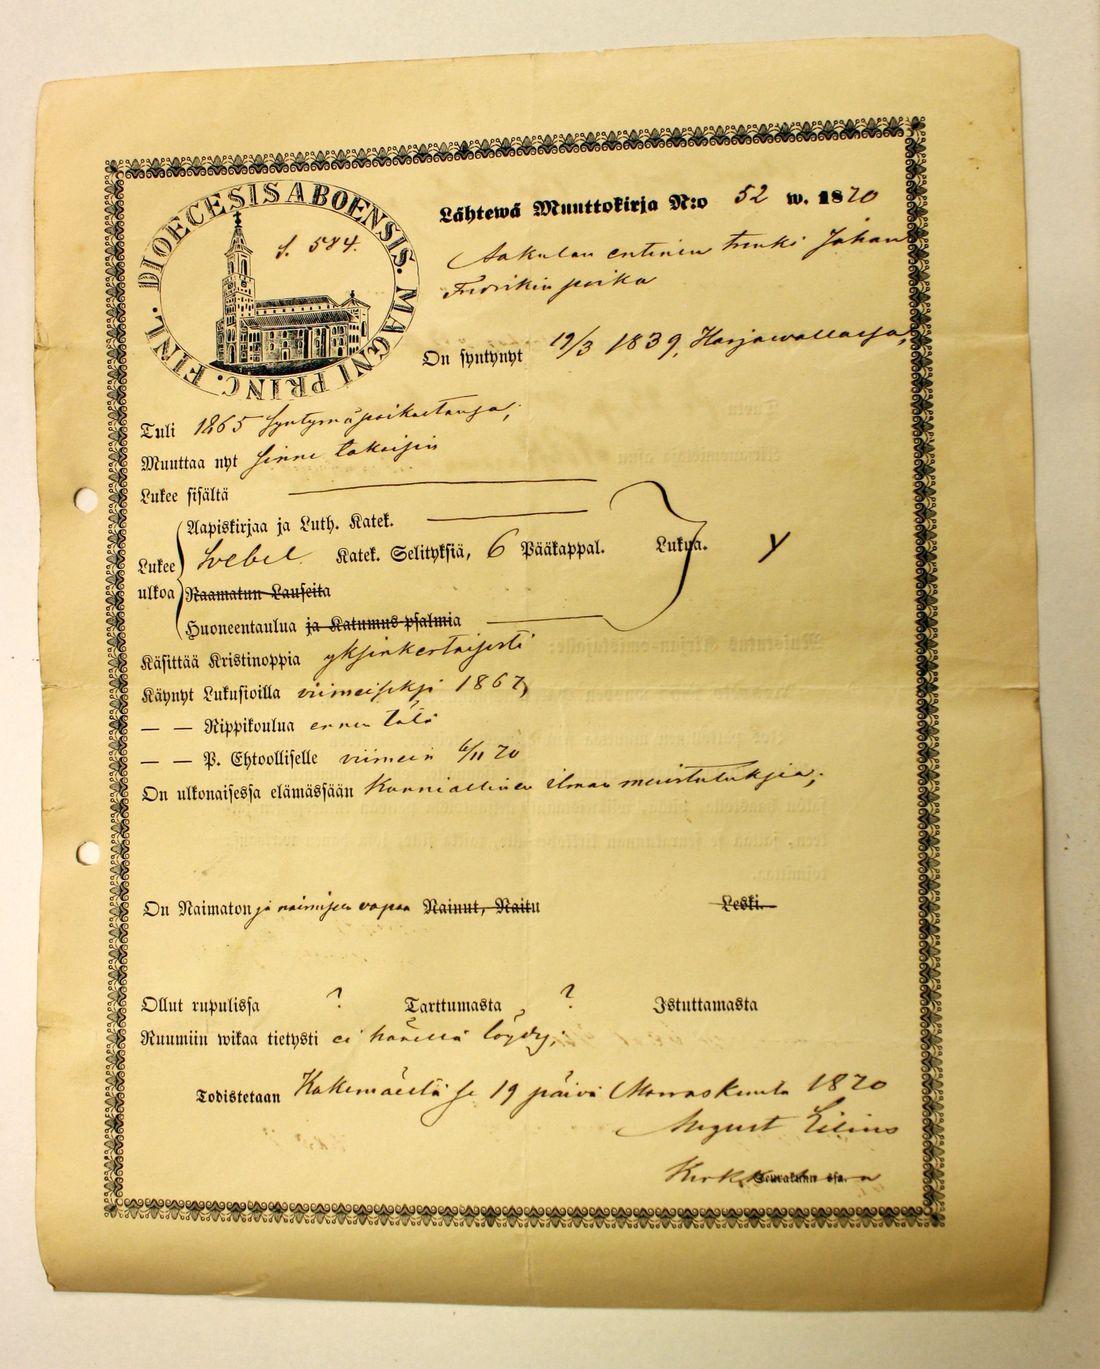 DIOECESIS ABOENSIS. MAGNI PRINC. FINL.
S. 584.
Lähtewä Muuttokirja N:o 52 w. 1870
Sakulan entinen trenki Johan
Fredrikin poika
On syntynyt 19/3 1839, Harjawallassa,
Tuli 1865 syntymäpaikastansa,
Muuttaa nyt sinne takaisin
Lukee sisältä
Aapiskirjaa ja Luth. Katek.
Lukee ulkoa Svebel. Katek. Selityksiä, 6 Pääkappal. Lukua. y
Raamatun Lauseita
Huoneentaulua ja Katumus-psalmia
Käsittää Kristinoppia yksinkertaisesti
Käynyt Lukusioilla viimeiseksi 1867,
— — Rippikoulua ennen tätä
— — P. Ehtoolliselle viimein 6/11 70
On ulkonaisessa elämässään Kunniallinen ilman muistutuksia,
On Naimaton ja naimiseen vapaa Nainut, Naitu Leski.
Ollut rupulissa ? Tarttumasta ? Istuttamasta
Ruumiin wikaa tietysti ei hänessä löydy,
Todistetaan Kokemäeltä se 19 päivä Marraskuuta 1870
August
Seurakunn. s:sa.